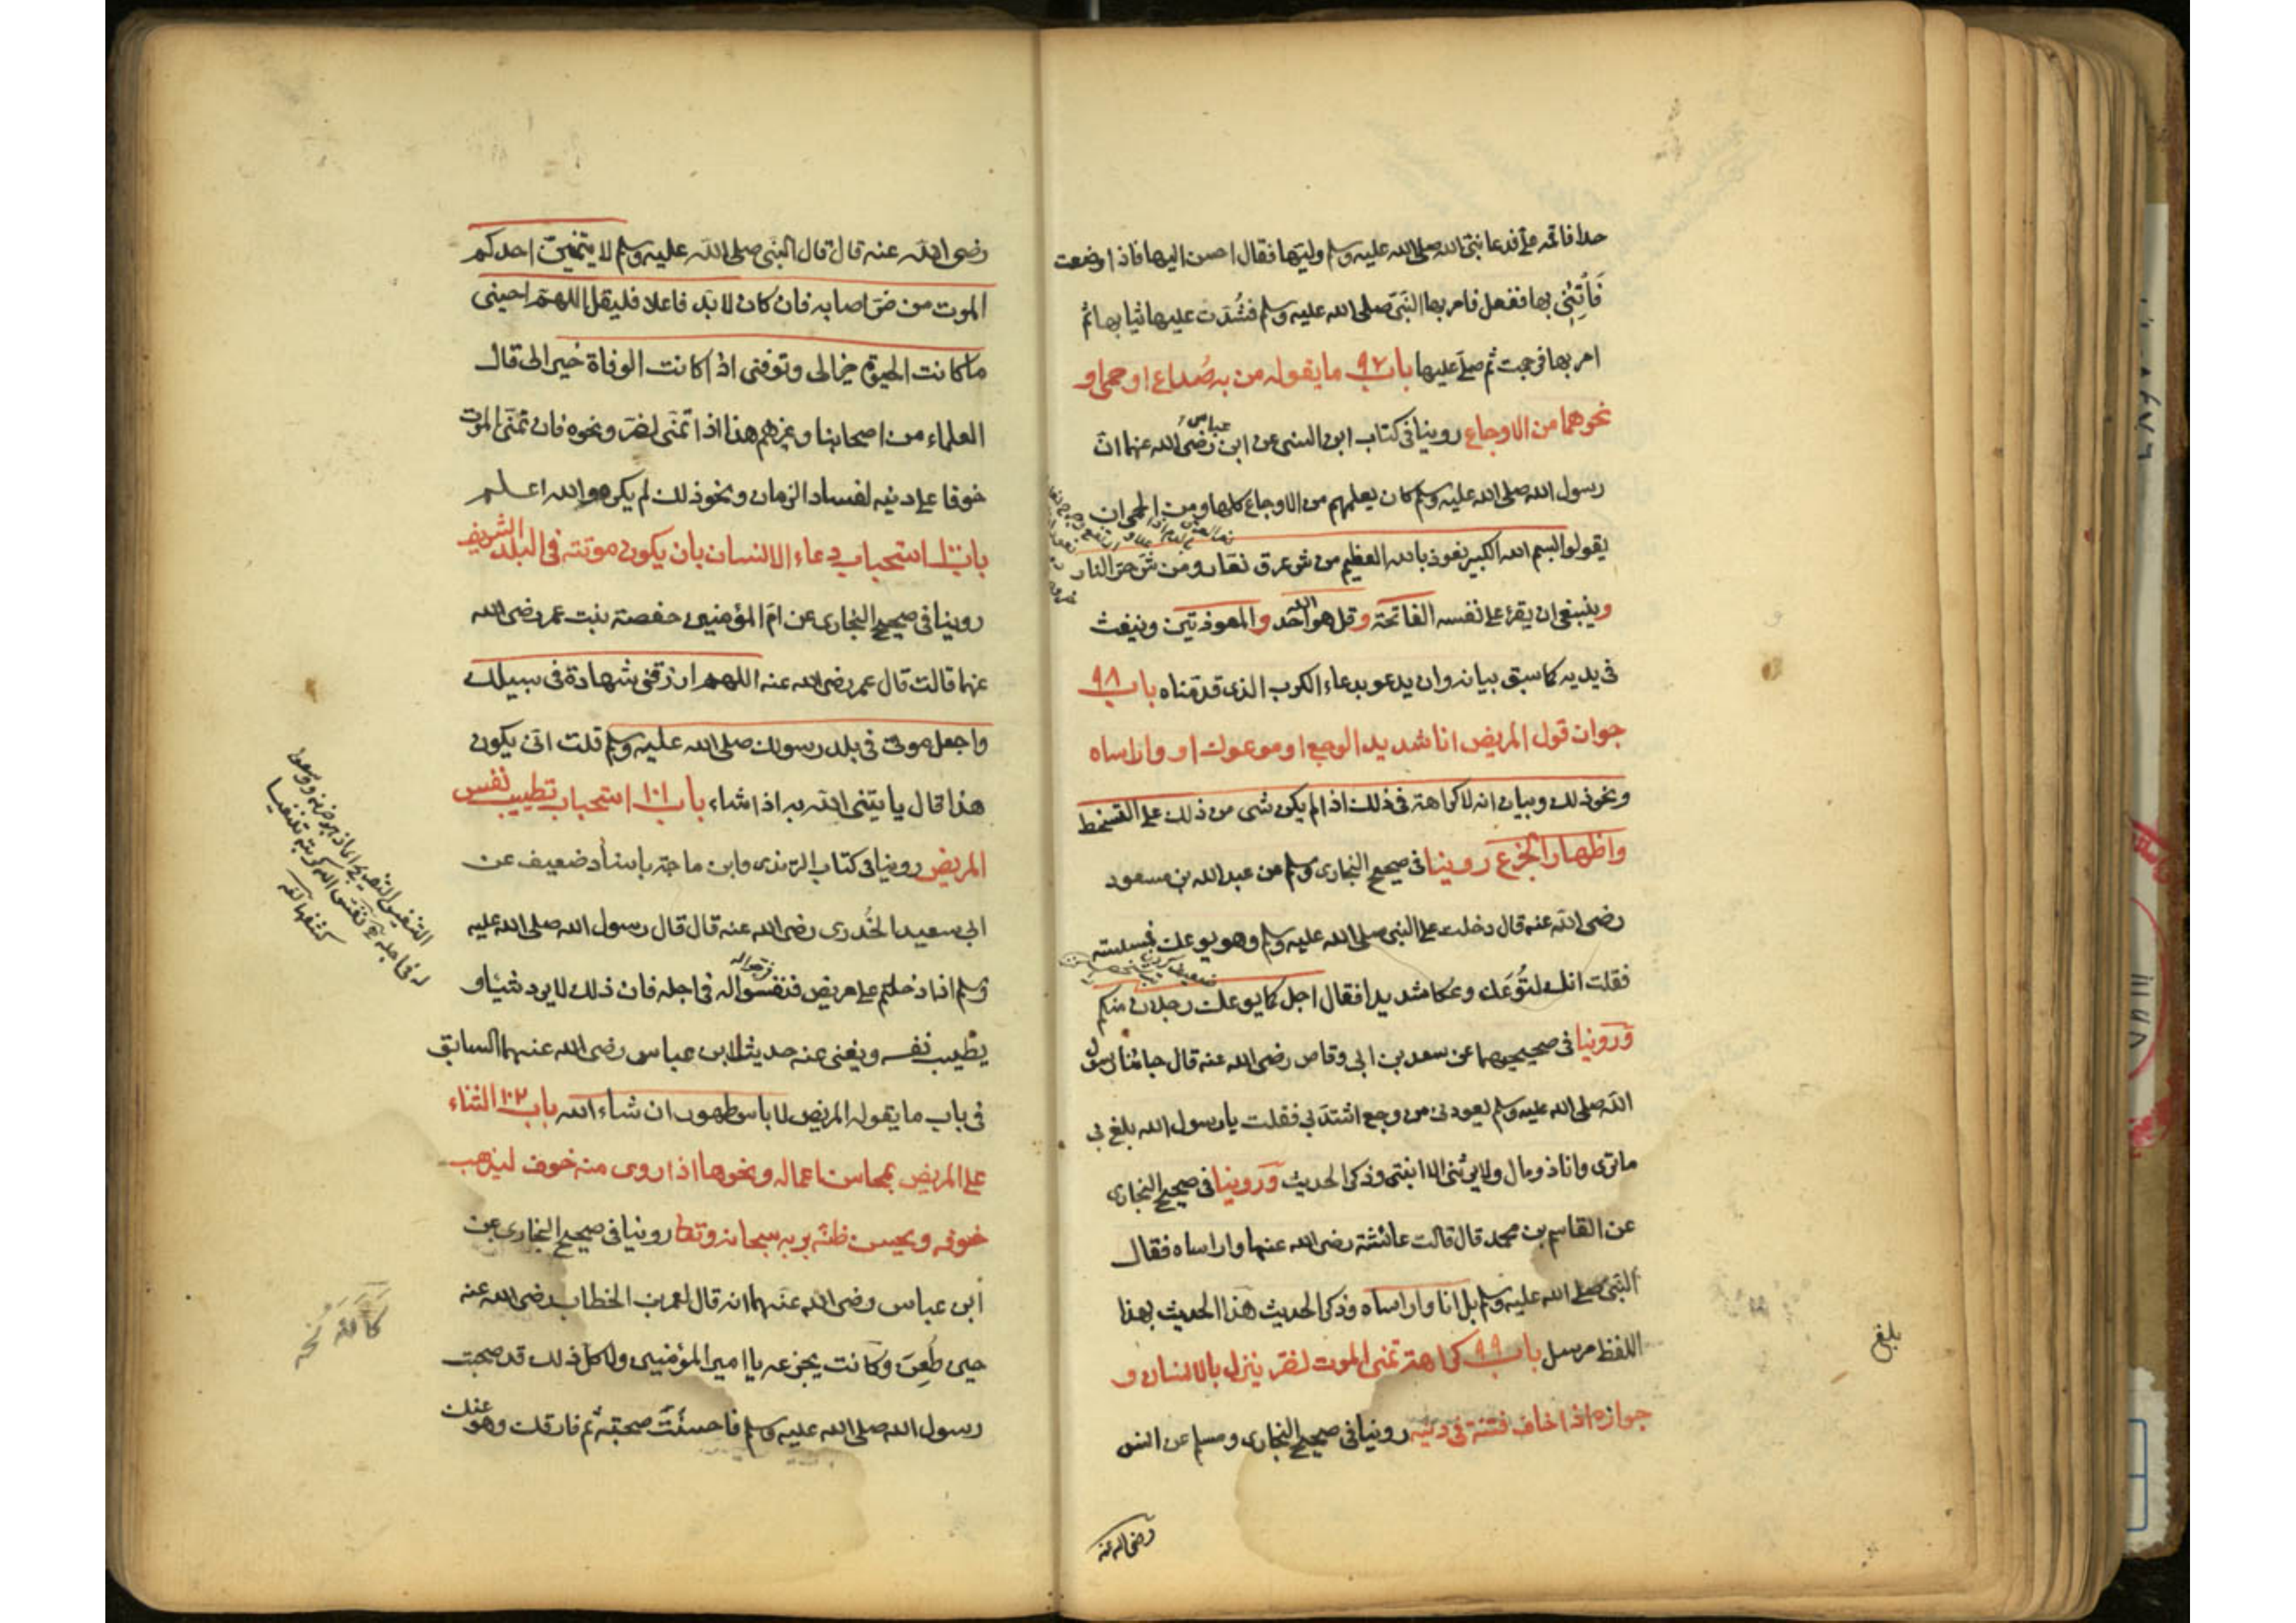 حدا فاقمه علي فدعا نبي الله صلى الله عليه وسلم وليها فقال احسن اليها فاذا وضعت
فَأْتِنِي بها ففعل فامر بها النبي صلى الله عليه وسلم فشُدّت عليها ثيابها ثم
امر بها فرجمت ثم صلى عليها باب ٩٧ ما يقوله من به صُداع او حمى او
نحوهما من الاوجاع روينا في كتاب ابن السني عن ابن عباس رضي الله عنهما انّ
رسول الله صلى الله عليه وسلم كان يعلمهم من الاوجاع كلها ومن الحمى ان
يقولوا بسم الله الكبير نعوذ بالله العظيم من شر عرق نعار ومن شر حر النار
وينبغي ان يقرء على نفسه الفاتحة وقل هو الله احد والمعوذتين وينفث
في يديه كما سبق بيانه وان يدعو بدعاء الكرب الذي قدمناه باب ٩٨
جوان قول المريض انا شديد الوجع او موعوك او وا راساه
ونحو ذلك وبيان انه لا كراهة في ذلك اذا لم يكن شي من ذلك على التسخط
واظهار الجزع روينا في صحيح البخاري ومسلم عن عبد الله بن مسعود
رضي الله عنه قال دخلت على النبي صلى الله عليه وسلم وهو يوعك فمسسته
فقلت انك لتُوعَك وعكا شديدا فقال اجل كما يوعك رجلان منكم
وروينا في صحيحيهما عن سعد بن ابي وقاص رضي الله عنه قال جائنا رسول
الله صلى الله عليه وسلم يعودني من وجع اشتدّ بي فقلت يا رسول الله بلغ بي
ما ترى وانا ذو مال ولا يرثني الا ابنتي وذكر الحديث وروينا في صحيح البخاري
عن القاسم بن محمد قال قالت عائشة رضي الله عنها وا راساه فقال
النبي صلى الله عليه وسلم بل انا وا راساه وذكر الحديث هذا الحديث بهذا
اللفظ مرسل باب ٩٩ كراهة تمني الموت لضر ينزل بالانسان و
جوازه اذا خاف فتنة في دينه روينا في صحيح البخاري ومسلم عن انس
رضي الله عنه
بلغ
رضي الله عنه قال قال النبي صلى الله عليه وسلم لا يتمنين احدكم
الموت من ضر اصابه فان كان لا بد فاعلا فليقل اللهم احيني
ما كانت الحيوة خيرا لي وتوفني اذا كانت الوفاة خيرا لي قال
العلماء من اصحابنا وغيرهم هذا اذا تمنى لضر ونحوه فان تمنى الموت
خوفا على دينه لفساد الزمان ونحو ذلك لم يكره والله اعلم
باب ١٠٠ استحباب دعاء الانسان بان يكون موته في البلد الشريف
روينا في صحيح البخاري عن ام المؤمنين حفصة بنت عمر رضي الله
عنها قالت قال عمر رضي الله عنه اللهم ارزقني شهادة في سبيلك
واجعل موتي في بلد رسولك صلى الله عليه وسلم قلت انى يكون
هذا قال ياتيني الله به اذا شاء باب ١٠١ استحباب تطييب نفس
المريض روينا في كتاب الترمذي وابن ماجة باسناد ضعيف عن
ابي سعيد الخُدري رضي الله عنه قال قال رسول الله صلى الله عليه
وسلم اذا دخلتم على مريض فنفسوا له في اجله فان ذلك لا يرد شيئا و
يطيب نفسه ويغني عنه حديث ابن عباس رضي الله عنهما السابق
في باب ما يقوله المريض لا باس طهور ان شاء الله باب ١٠٢ الثناء
على المريض بمحاسن اعماله ونحوها اذا روى منه خوف ليذهب
خوفه ويحسن ظنّه بربه سبحانه وتعا روينا في صحيح البخاري عن
ابن عباس رضي الله عنهما انه قال لعمر بن الخطاب رضي الله عنه
حين طُعِنَ وكانت يجزعه يا امير المؤمنين ولا كل ذلك قد صحبت
رسول الله صلى الله عليه وسلم فاحسنْتَ صحبته ثم فارقك وهو عنك